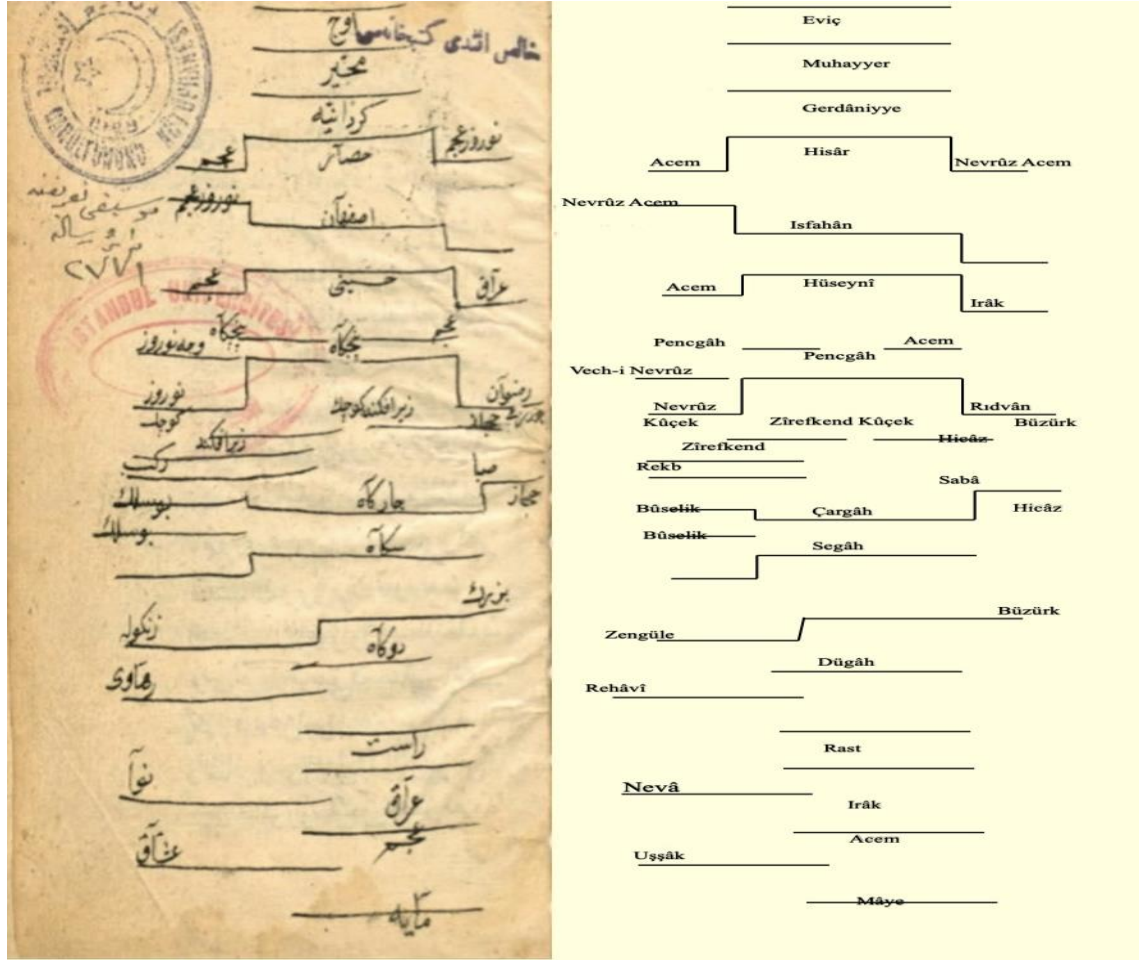 اوج
خالص افندی کتبخانه‌سی
محیر
کردانیه
نوروز عجم
حصار
عجم
نوروز عجم
اصفهان
موسیقی
٢٧٧١
عراق
حسینی
عجم
ISTANBUL
عجم
پنجکاه
پنجکاه
نوروز
رضوان
نوروز
کوچك
زیرافکند کوچك
حجاز
زیرافکند
رکب
صبا
حجاز
چارکاه
بوسلك
بوسلك
سکاه
بزرك
زنکوله
دوکاه
رهاوی
راست
نوا
عراق
عجم
عشاق
مایه
Eviç
Muhayyer
Gerdâniyye
Hisâr
Acem Nevrûz Acem
Nevrûz Acem
Isfahân
Acem Hüseynî
Irâk
Pencgâh Acem
Pencgâh
Vech-i Nevrûz
Nevrûz Rıdvân
Kûçek Zîrefkend Kûçek Büzürk
Hicâz
Zîrefkend
Rekb
Sabâ
Bûselik Çargâh Hicâz
Bûselik
Segâh
Büzürk
Zengüle
Dügâh
Rehâvî
Rast
Nevâ
Irâk
Acem
Uşşâk
Mâye